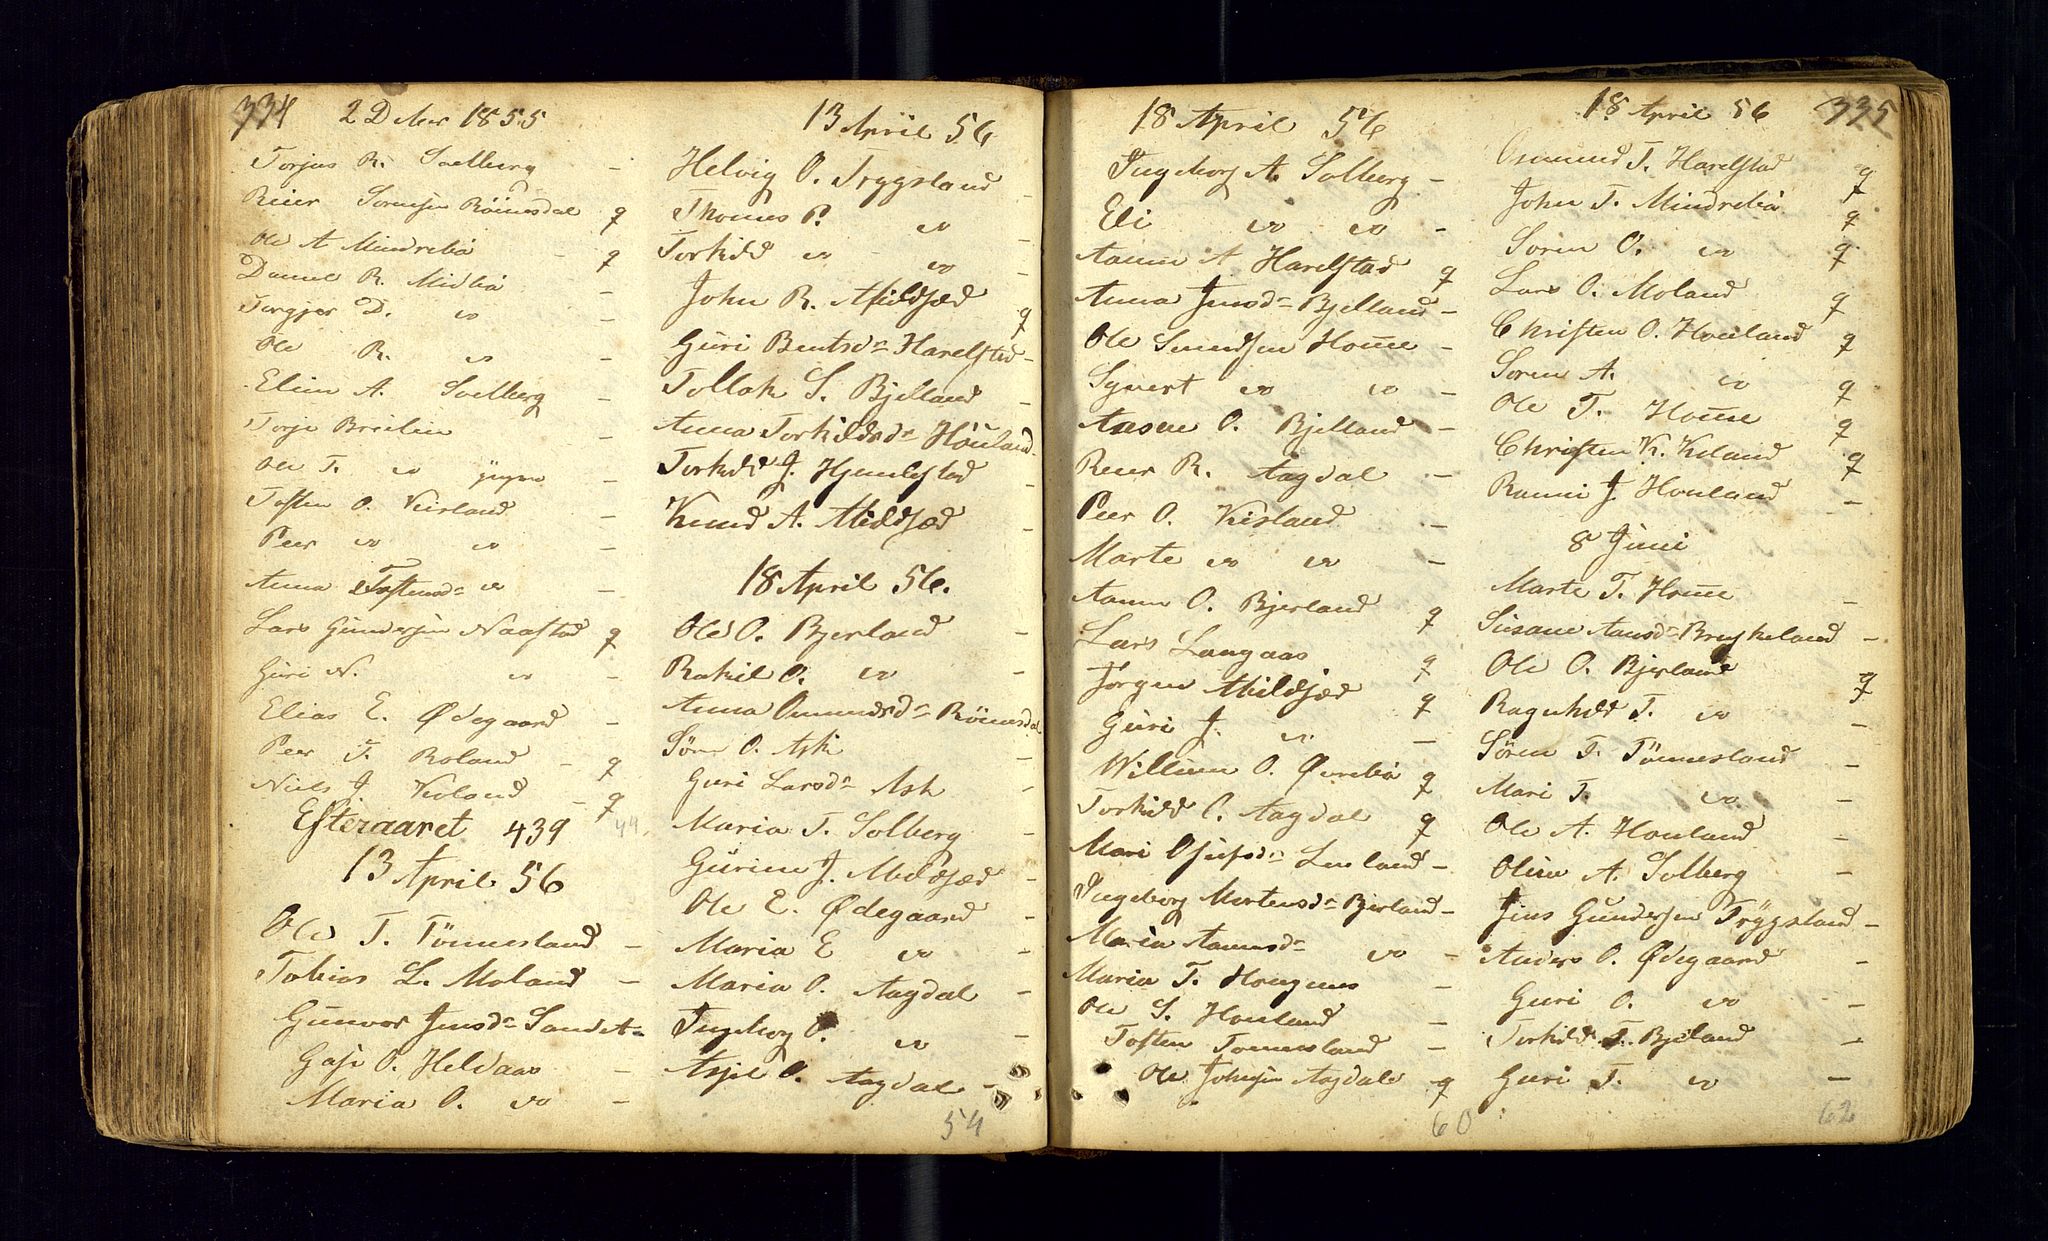 334 2 Decbr 1855
Torjus R. Soelberg -
Reier Sørensen Röinesdal q
Ole A Mindrebö - q
Daniel R. Midbö -
Torgjer D. vo -
Ole R. vo -
Elin A. Soelberg -
Torje Breilien -
Ole T. vo yngre -
Tosten O. Keisland -
Peer vo vo -
Anna Tostensdr vo -
Lars Gundersen Naastad q
Guri N. vo -
Elias E. Ødegaard -
Peer T. Roland - q
Niels J Keiland - q
Efteraaret 439
13 April 56
Ole T. Tönnesland -
Tobias L. Moland -
Gunvor Jensdr Sandet -
Gase O. Heldaas -
Maria O. vo -
13 April 56
Helvig O. Trygsland -
Thomas P. vo -
Torkild vo vo -
John R. Mildfjed q
Guri Bentsdr Harelstad -
Tollak S. Bjelland -
Anna Torkildsdr Höuland -
Torkild J. Hjemlestad -
Knud A. Mildfjed -
18 April 56.
Ole O. Bjerland -
Rakil O. vo -
Anna Omundsdr Röinesdal
Søren O. Ask -
Guri Larsdr Ask -
Maria T. Solberg -
Gurine J. Mildfjed -
Ole E. Ødegaard -
Maria E vo -
Maria O. Aagdal -
Ingeborg O. vo -
Asjel O. Aagdal -
54
18 April 56
Ingeborg A. Solberg -
Eli vo vo -
Aanen A Harelstad q
Anna Jensdr Bjelland -
Ole Smundsen Houe -
Syvert vo vo -
Aasne O. Bjelland -
Reier R. Aagdal -
Peer O. Keisland -
Marte vo vo -
Aanen O. Bjerland q
Lars Langaas q
Jørgen Mildfjed q
Guri J. vo -
William O. Øvrebö q
Torkild O. Aagdal q
Mari Osufsdr Lauland -
Ingeborg Mortensdr Bjerland -
Maria Aanensdr vo -
Maria T. Hougenes -
Ole S. Houland -
Tosten Tonnesland -
Ole Johnsen Aagdal q
60
18 April 56 335
Osmund T. Harelstad q
John T. Mindrebö q
Soren O. vo q
Lars O. Moland q
Christen O. Houland q
Soren A. vo q
Ole T. Houe q
Christen K. Keland q
Ranni J. Houland -
8 Juni
Marte T. Houe -
Susane Aansdr Bruskeland -
Ole O. Bjerland q
Ragnhild T. vo -
Søren T. Tönnesland -
Mari T. vo -
Ole A. Houland -
Oline A. Solberg -
Jens Gundersen Trÿgsland -
Anders O. Ødegaard -
Guri O. vo -
Torkild T. Bjelland -
Guri T. vo -
62